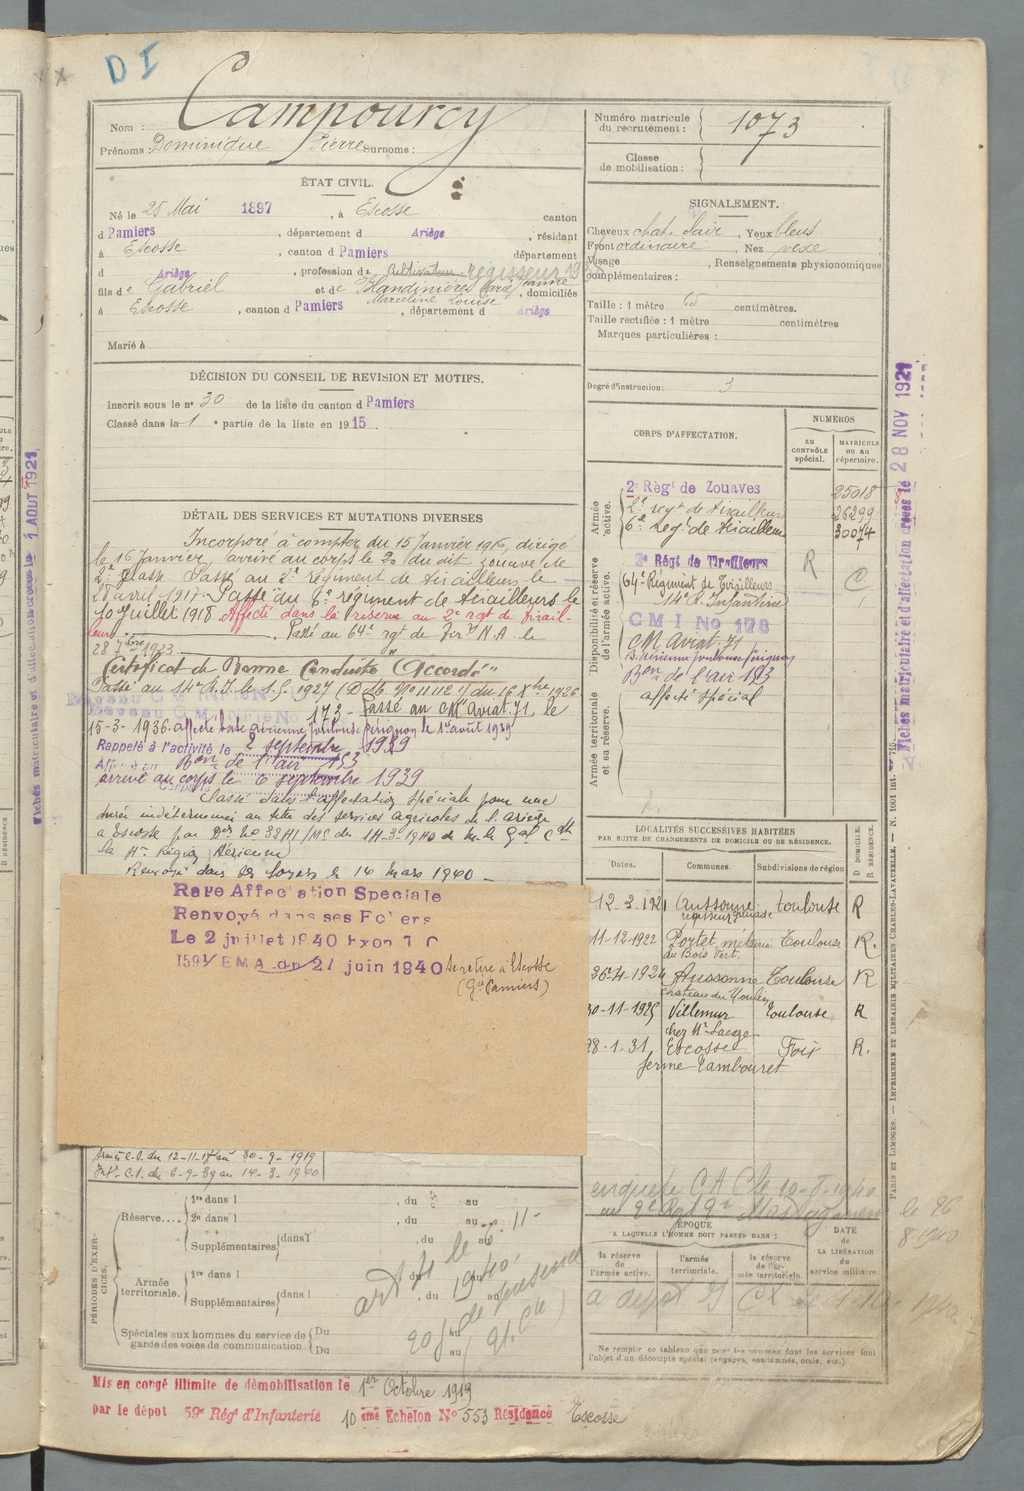 D I
Nom : Campourcy
Prénoms : Dominique Pierre Surnoms :
Numéro matricule du recrutement : 1073
Classe de mobilisation :
ÉTAT CIVIL.
Né le 25 Mai 1897, à Escosse canton
d Pamiers, département d Ariège, résidant
à Escosse, canton d Pamiers département
d Ariège, profession de Cultivateur régisseur
fils de Gabriel et de Blandinières Marie Jeanne
Marceline Louise, domiciliés
à Escosse, canton d Pamiers, département d Ariège
Marié à
SIGNALEMENT.
Cheveux chat. clair, Yeux bleus
Front ordinaire, Nez vexe
Visage, Renseignements physionomiques
complémentaires :
Taille : 1 mètre 65 centimètres.
Taille rectifiée : 1 mètre centimètres
Marques particulières :
Degré d'instruction : 3
DÉCISION DU CONSEIL DE REVISION ET MOTIFS.
Inscrit sous le n° 30 de la liste du canton d Pamiers
Classé dans la 1e partie de la liste en 1915
DÉTAIL DES SERVICES ET MUTATIONS DIVERSES
Incorporé à compter du 15 Janvier 1916, dirigé
le 16 Janvier, arrivé au corps le 20 du dit, zouave de
2e classe. Passé au 2e régiment de tirailleurs le
28 avril 1917. Passé au 6e régiment de tirailleurs le
10 Juillet 1918 Affecté dans la réserve au 2e rgt de tirail-
leurs. Passé au 64e rgt de Tirrs N.A. le
28 7bre 1923
Certificat de Bonne Conduite "Accordé"
Passé au 14e R.I. le 1.5. 1927 (D.M. No 11112 1/1 du 16 Xbre 1926
173 - Passé au CM Aviat. 71, le
15-3-1936. affecté base aérienne Toulouse Pérignon le 1er août 1939
Rappelé à l'activité le 2 septembre 1939
Affecté au Bon de l'air 153
arrivé au corps le 6 septembre 1939
Classé dans l'affectation spéciale pour une
durée indéterminée au titre des services agricoles de l'Ariège
à Escosse par
la Région Aérienne
Renvoyé dans ses foyers le 14 mars 1940 -
Raye Affectation Speciale
Renvoyé dans ses Foyers
Le 2 juillet 1940
1591/EMA du 21 juin 1940 se retire à Escosse
(Gn Pamiers)
CORPS D'AFFECTATION.
NUMÉROS
AU CONTRÔLE spécial.
MATRICULE OU AU répertoire.
Armée active.
2e Régt de Zouaves 25018
2e regt de tirailleurs 26299
6e Regt de tirailleurs 30074
Disponibilité et réserve de l'armée active.
2e Régt de Tirailleurs R
64e Régiment de Tirailleurs C
14e R. Infanterie
C M I No 173
CM Aviat. 71
B. Aérienne Toulouse Pérignon
Bon de l'air 153
affecté spécial
Armée territoriale et sa réserve.
LOCALITÉS SUCCESSIVES HABITÉES
PAR SUITE DE CHANGEMENTS DE DOMICILE OU DE RÉSIDENCE.
D DOMICILE.
R RÉSIDENCE.
Dates. Communes. Subdivisions de région
12-3-1921 Aussonne Toulouse R
11-12-1922 Portet, métairie Toulouse R.
du Bois Vert.
26-4-1924 Aussonne Toulouse R
Chateau du Moulin
30-11-1925 Villemur Toulouse R
chez Mr
28-1-31 Escosse Foix R.
ferme Tambouret
Armée C.D. du 12-11-17 au 30-9-1919
Intr C.D. du 6-9-39 au 14-3-1940
PÉRIODES D'EXERCICES.
Réserve.... 1re dans l , du au
2e dans l , du au
Supplémentaires dans l , du au
Armée territoriale. 1re dans l , du au
Supplémentaires dans l , du au
Spéciales aux hommes du service de Du au
garde des voies de communication Du au
enquête C A C le 10-8-1940
ÉPOQUE
A LAQUELLE L'HOMME DOIT PASSER DANS :
la réserve de l'armée active.
l'armée territoriale.
la réserve de l'armée territoriale.
DATE de LA LIBÉRATION du service militaire.
Ne remplir ce tableau que pour les hommes dont les services font
l'objet d'un décompte spécial (engagés, condamnés, omis, etc.).
Mis en congé illimité de démobilisation le 1er Octobre 1919
par le dépôt 59e Rég d'Infanterie 10 ème Echelon No 553 Résidence Escosse
Fiches matriculaire et d'affectation créées le 28 NOV 1921
Fiches matriculaire et d'affectation créées le 1 AOUT 1921
PARIS ET LIMOGES. — IMPRIMERIE ET LIBRAIRIE MILITAIRES CHARLES-LAVAUZELLE. — N. 1001